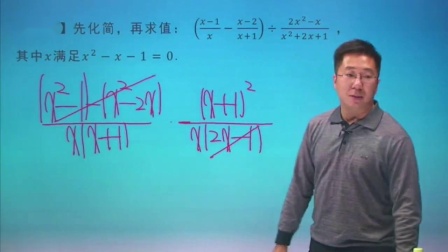 】先化简，再求值：(\frac{x-1}{x}-\frac{x-2}{x+1})÷\frac{2x²-x}{x²+2x+1}，
其中x满足x²-x-1=0.
\frac{(x²-1)-(x²-2x)}{x(x+1)} · \frac{(x+1)²}{x(2x-1)}